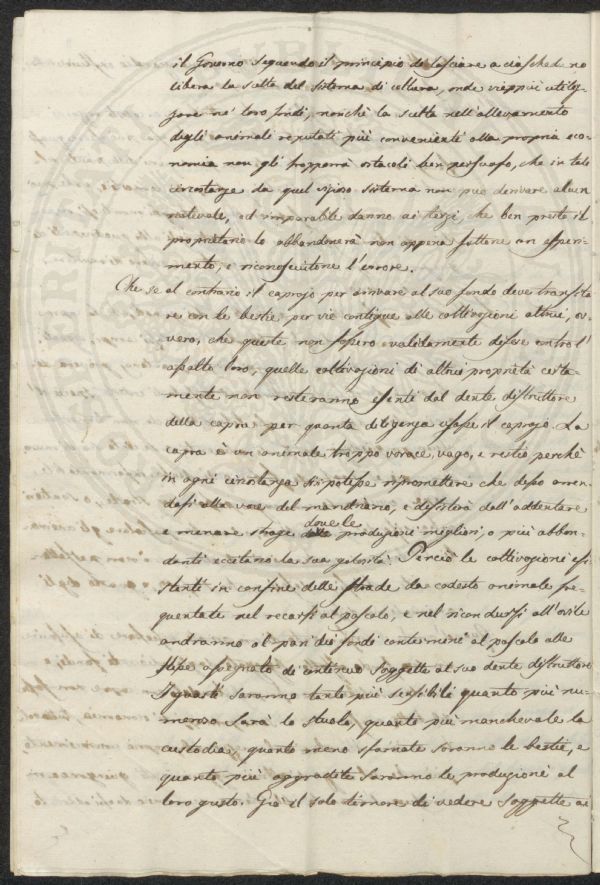 il Governo seguendo il principio di lasciare a ciasched.no
libera la scelta del sistema di coltura, onde vieppiù utiliz-
zare ne' loro fondi, nonchè la scelta nell'allevamento
degli animali reputati più convenienti alla propria eco-
nomia non gli frapporrà ostacoli ben persuaso, che in tale
circostanza da quel vizioso sistema non può derivare alcun
notevole, ed irreparabile danno ai terzi, che ben presto il
proprietario lo abbandonerà non appena fattone un esperi-
mento, e riconosciutone l'errore.
Che se al contrario il caprajo per arrivare al suo fondo deve transita-
re con le bestie per vie contigue alle coltivazioni altrui, ov-
vero, che queste non fossero validamente difese contro l'
assalto loro, quelle coltivazioni di altrui proprietà certa-
mente non resteranno esenti dal dente distruttore
della capra per quanta diligenza usasse il caprajo. La
capra è un animale troppo vorace, vago, e restio perchè
in ogni circostanza si potesse ripromettere che desso arren-
dasi alla voce del mandriano, e desisterà dall'addentare
e menare strage dove le produzioni migliori, o più abbon-
danti eccitano la sua golosità. Perciò le coltivazioni esi-
stenti in confine delle strade da codesto animale fre-
quentate nel recarsi al pascolo, e nel ricondursi all'ovile
andranno al pari dei fondi contermini al pascolo alle
stesse assegnato di continuo soggette al suo dente distruttore
I guasti saranno tanto più sensibili quanto più nu-
meroso sarà lo stuolo, quanto più manchevole la
custodia, quanto meno sfamate saranno le bestie, e
quanto più aggradite saranno le produzioni al
loro gusto. Già il solo timore di vedere soggette ai